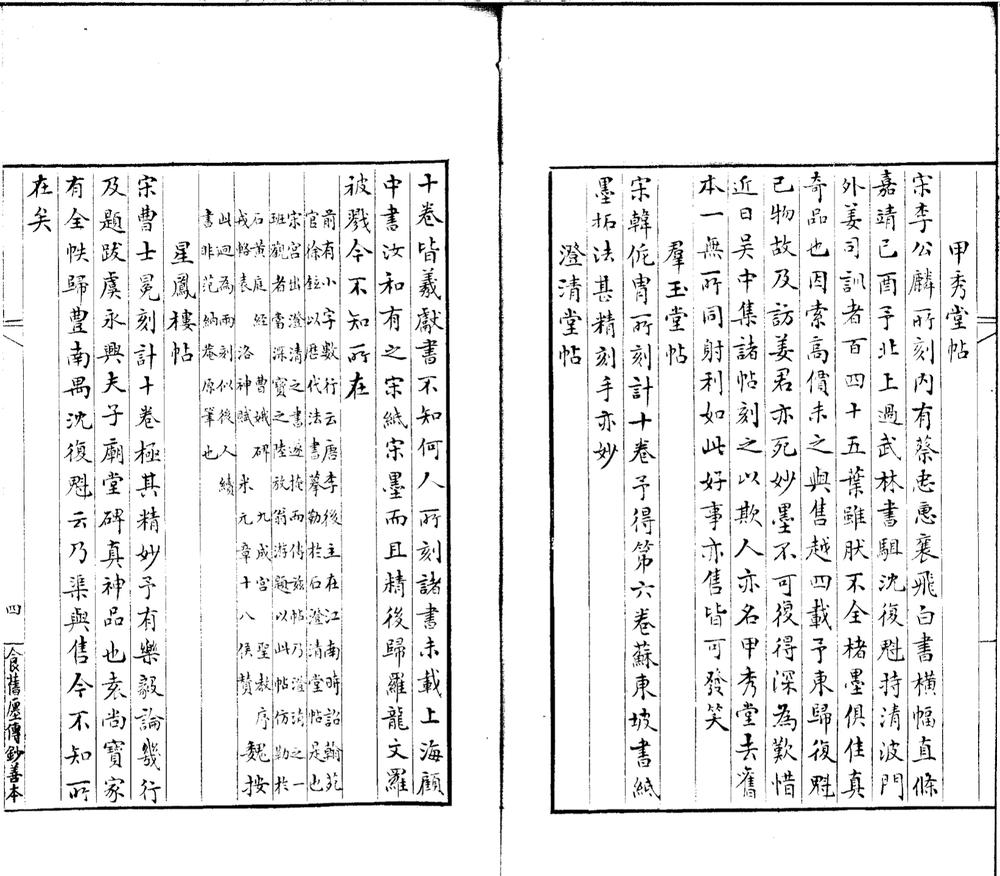 甲秀堂帖
宋李公麟所刻內有蔡忠惠襄飛白書橫幅直條
嘉靖己酉予北上過武林書駔沈復魁持清波門
外姜司訓者百四十五葉雖肰不全楮墨俱佳真
奇品也因索高價未之與售越四載予東歸復魁
已物故及訪姜君亦死妙墨不可復得深為歎惜
近日吴中集諸帖刻之以欺人亦名甲秀堂去舊
本一無所同射利如此好事亦售皆可發笑
羣玉堂帖
宋韓侂胄所刻計十卷予得第六卷蘇東坡書紙
墨拓法甚精刻手亦妙
澄清堂帖
十卷皆羲獻書不知何人所刻諸書未載上海顧
中書汝和有之宋紙宋墨而且精後歸羅龍文羅
被戮今不知所在
前有小字數行云唐李後主在江南時詔翰苑
官徐鉉以歷代法書摹勒於石澄清堂帖是也
宋宮出澄清之書遊掖而傳兹帖乃澄清之一
班觀者當深寶之陸放翁游題以此帖仿勒於
石黄庭經 曹娥碑 九成宮 聖教序 魏按
戎輅表 洛神賦 米元章十八侯贊
此迴為兩刻似後人續
書非范納菴原筆也
星鳳樓帖
宋曹士冕刻計十卷極其精妙予有樂毅論幾行
及題跋虞永興夫子廟堂碑真神品也袁尚寶家
有全帙歸豊南禺沈復魁云乃渠與售今不知所
在矣
四
食舊廛傳鈔善本